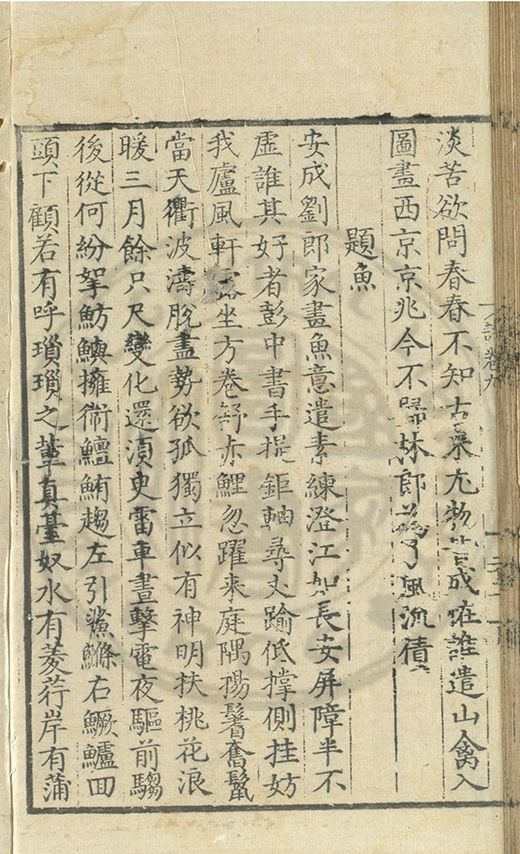 淡苦欲問春春不知古来尤物皆成
誰遣山禽入
圖畫西京京兆今不歸林郎為了風流債
題魚
安成劉郎家畫魚意遣素練澄江如長安屏障半不
虛誰其好者彭中書手提鉅軸尋丈踰低撑側挂妨
我廬風軒露坐方卷舒赤鯉忽躍来庭隅揚鬐奮鬣
當天衢波濤脫盡勢欲孤獨立似有神明扶桃花浪
暖三月餘只尺變化還須史雷車晝擊電夜驅前騶
後從何紛挐魴鱮擁衛鱣鮪趨左引鯊鰷右鱖鱸回
頭下顧若有呼瑣瑣之輩真臺奴水有菱荇岸有蒲
詩卷九